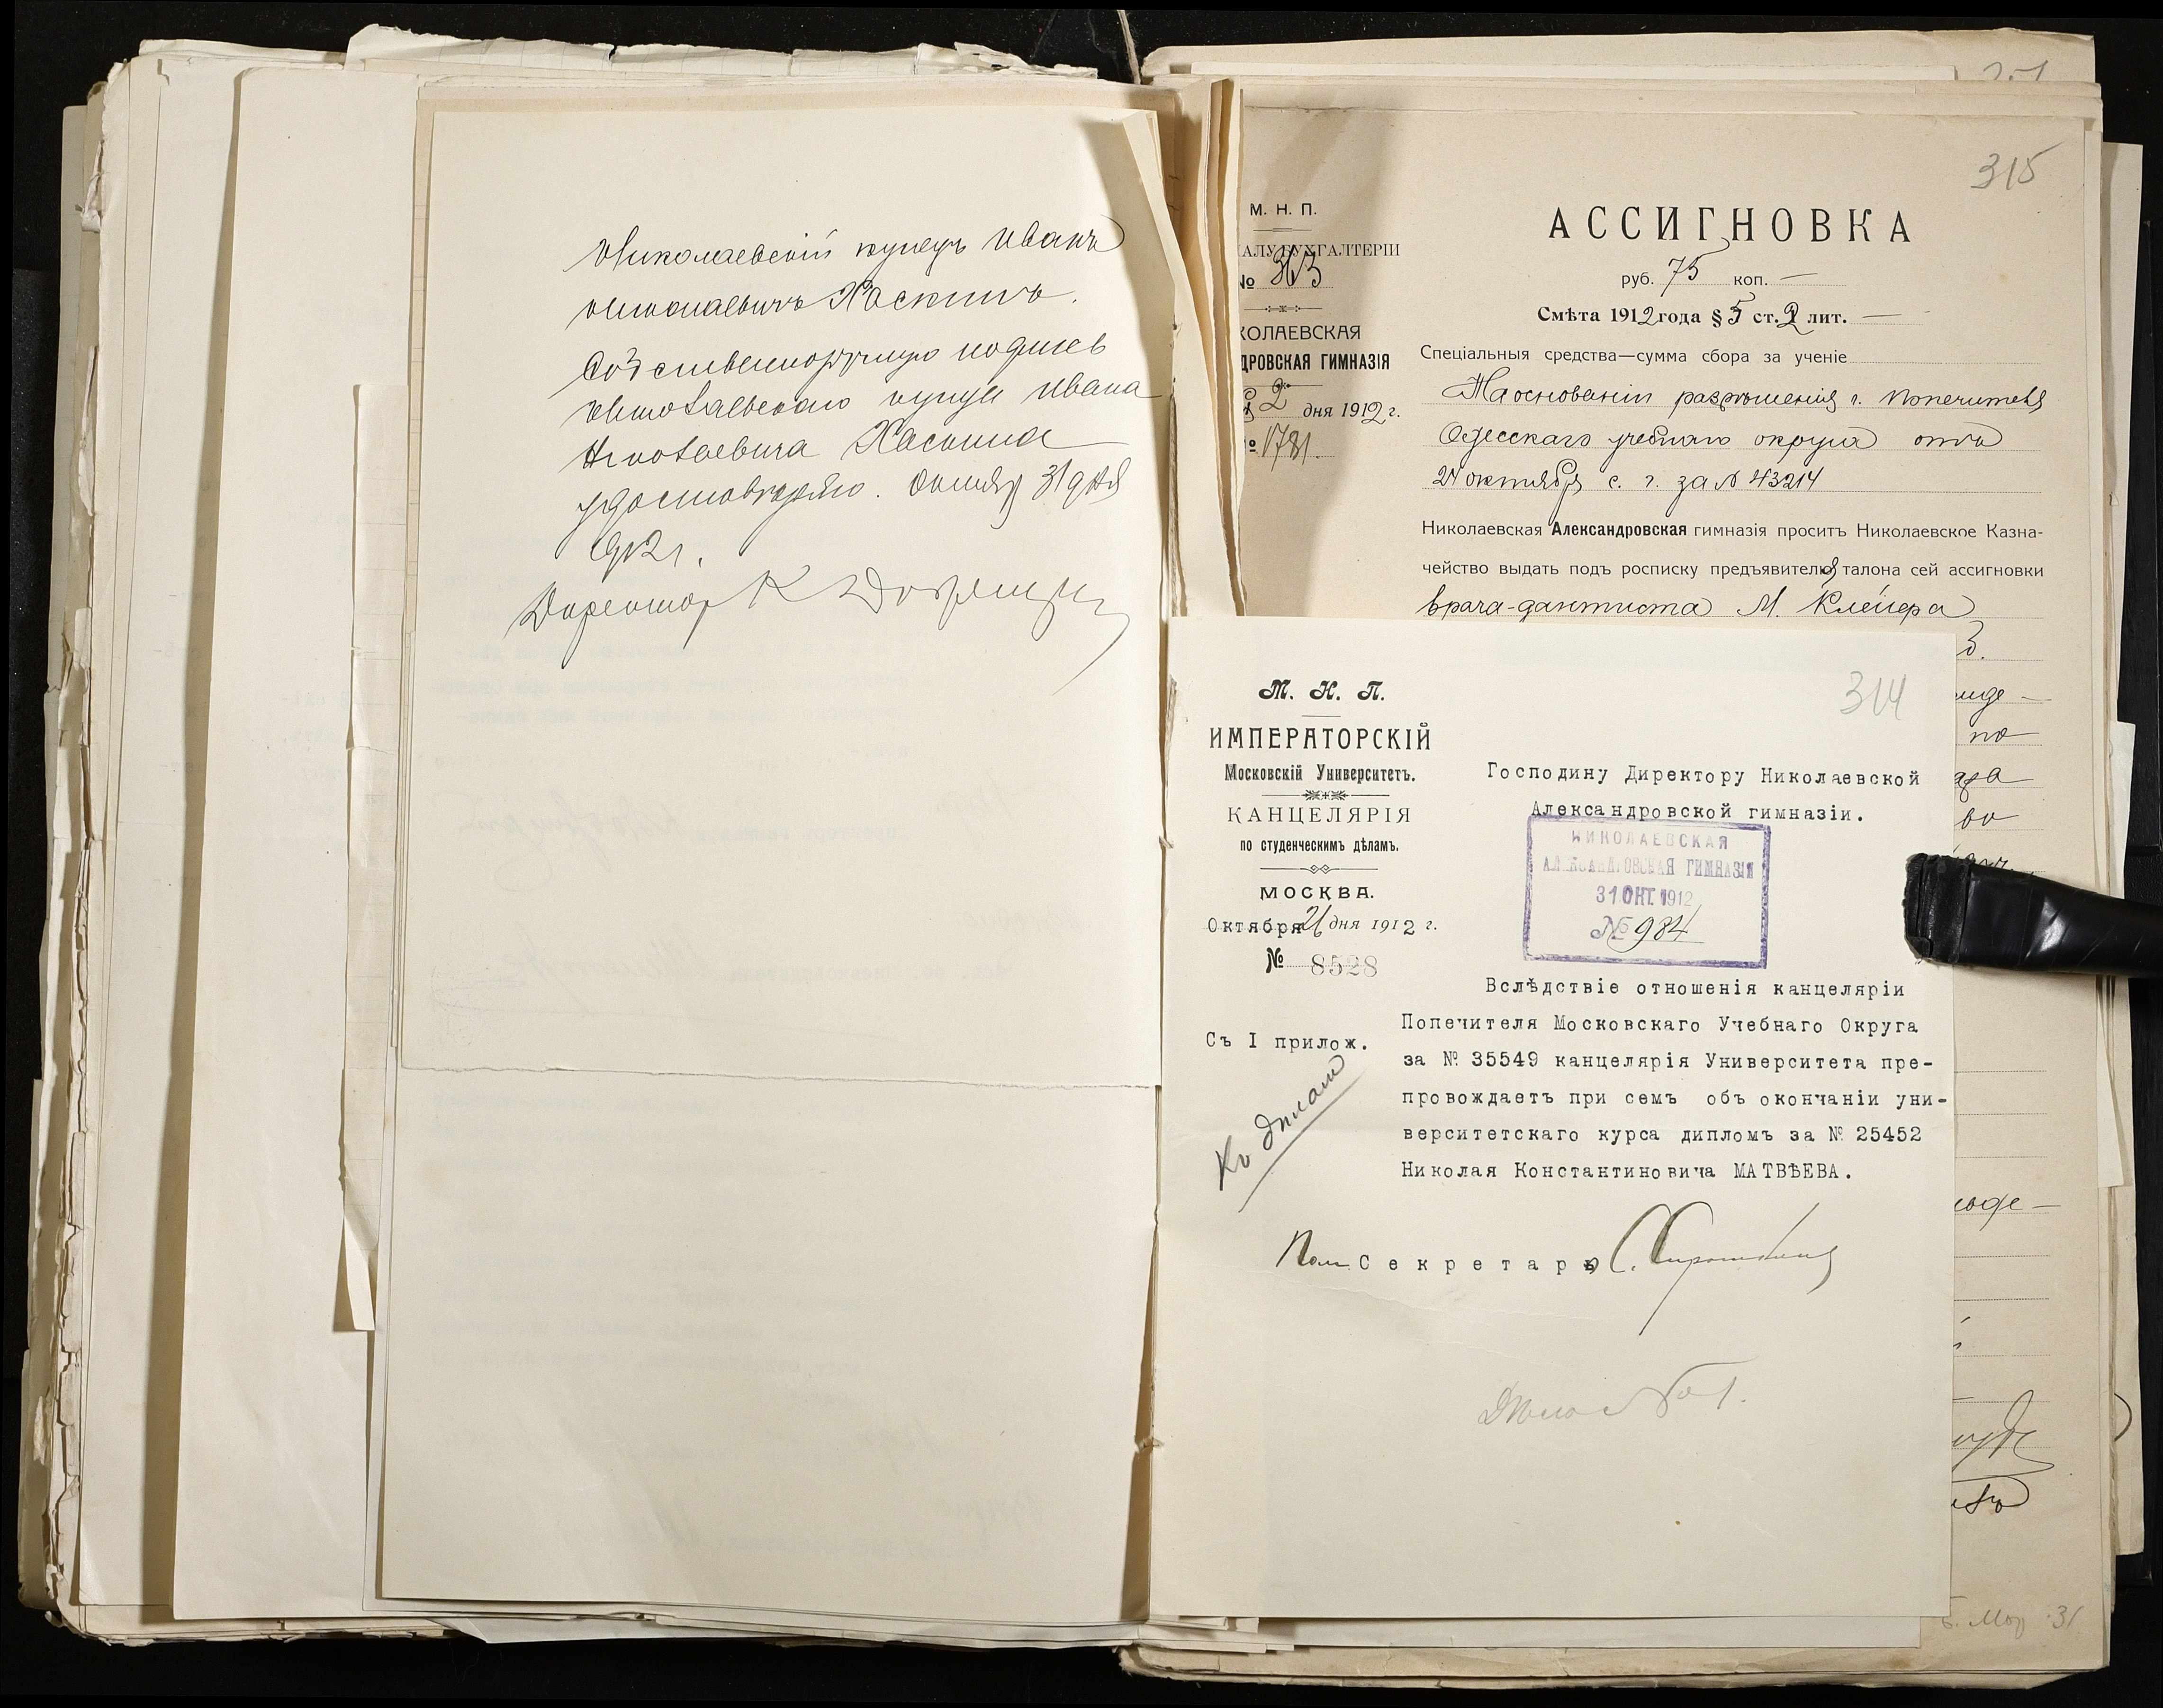 Николаевскій купецъ Иванъ
Николаевичъ Хаскинъ.
Собственноручную подпись
Николаевскаго купца Ивана
Николаевича Хаскина
удостовѣряю. Октября 31 дня
1912 г.
Директоръ К
315
М. Н. П.
АЛУ БУХГАЛТЕРІИ
№ 363
КОЛАЕВСКАЯ
ДРОВСКАЯ ГИМНАЗІЯ
2 дня 1912 г.
1781.
АССИГНОВКА
руб. 75 коп. —
Смѣта 1912 года § 5 ст. 2 лит. —
Спеціальныя средства—сумма сбора за ученіе
На основаніи разрѣшенія г. Попечителя
Одесскаго учебнаго округа отъ
24 октября с. г. за № 43214
Николаевская Александровская гимназія проситъ Николаевское Казна-
чейство выдать подъ росписку предъявителю талона сей ассигновки
врача-дантиста М. Клейера
314
М. Н. П.
ИМПЕРАТОРСКІЙ
Московскій Университетъ.
КАНЦЕЛЯРІЯ
по студенческимъ дѣламъ.
МОСКВА.
Октября 26 дня 1912 г.
№ 8528
Съ I прилож.
Къ дѣламъ
Господину Директору Николаевской
Александровской гимназіи.
НИКОЛАЕВСКАЯ
АЛЕКСАНДРОВСКАЯ ГИМНАЗІЯ
31 ОКТ. 1912
№ 984
Вслѣдствіе отношенія канцеляріи
Попечителя Московскаго Учебнаго Округа
за № 35549 канцелярія Университета пре-
провождаетъ при семъ объ окончаніи уни-
верситетскаго курса дипломъ за № 25452
Николая Константиновича МАТВѢЕВА.
Пом. Секретаря
Дѣло № 1.